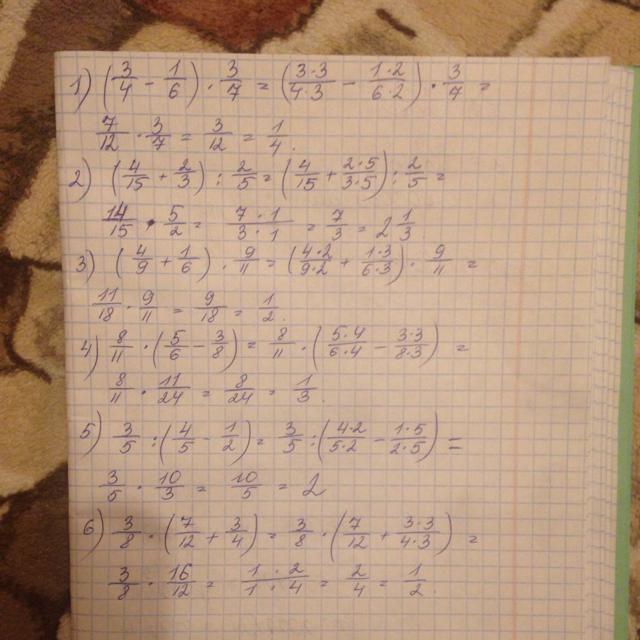 1) (3/4 - 1/6) · 3/7 = (3·3/4·3 - 1·2/6·2) · 3/7 =
7/12 · 3/7 = 3/12 = 1/4.
2) (4/15 + 2/3) : 2/5 = (4/15 + 2·5/3·5) : 2/5 =
14/15 · 5/2 = 7·1/3·1 = 7/3 = 2 1/3
3) (4/9 + 1/6) · 9/11 = (4·2/9·2 + 1·3/6·3) · 9/11 =
11/18 · 9/11 = 9/18 = 1/2.
4) 8/11 · (5/6 - 3/8) = 8/11 · (5·4/6·4 - 3·3/8·3) =
8/11 · 11/24 = 8/24 = 1/3.
5) 3/5 : (4/5 - 1/2) = 3/5 : (4·2/5·2 - 1·5/2·5) =
3/5 · 10/3 = 10/5 = 2
6) 3/8 · (7/12 + 3/4) = 3/8 · (7/12 + 3·3/4·3) =
3/8 · 16/12 = 1·2/1·4 = 2/4 = 1/2.